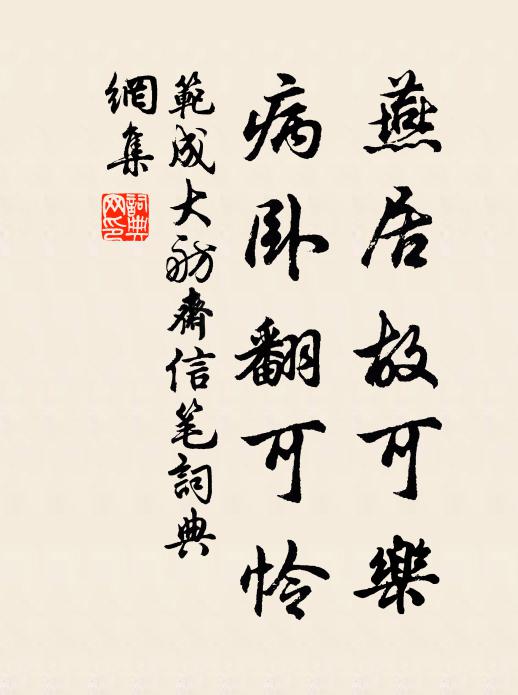 燕居故可樂
病卧翻可怜
範成大舫齋信笔詞典
網集
詞典网印